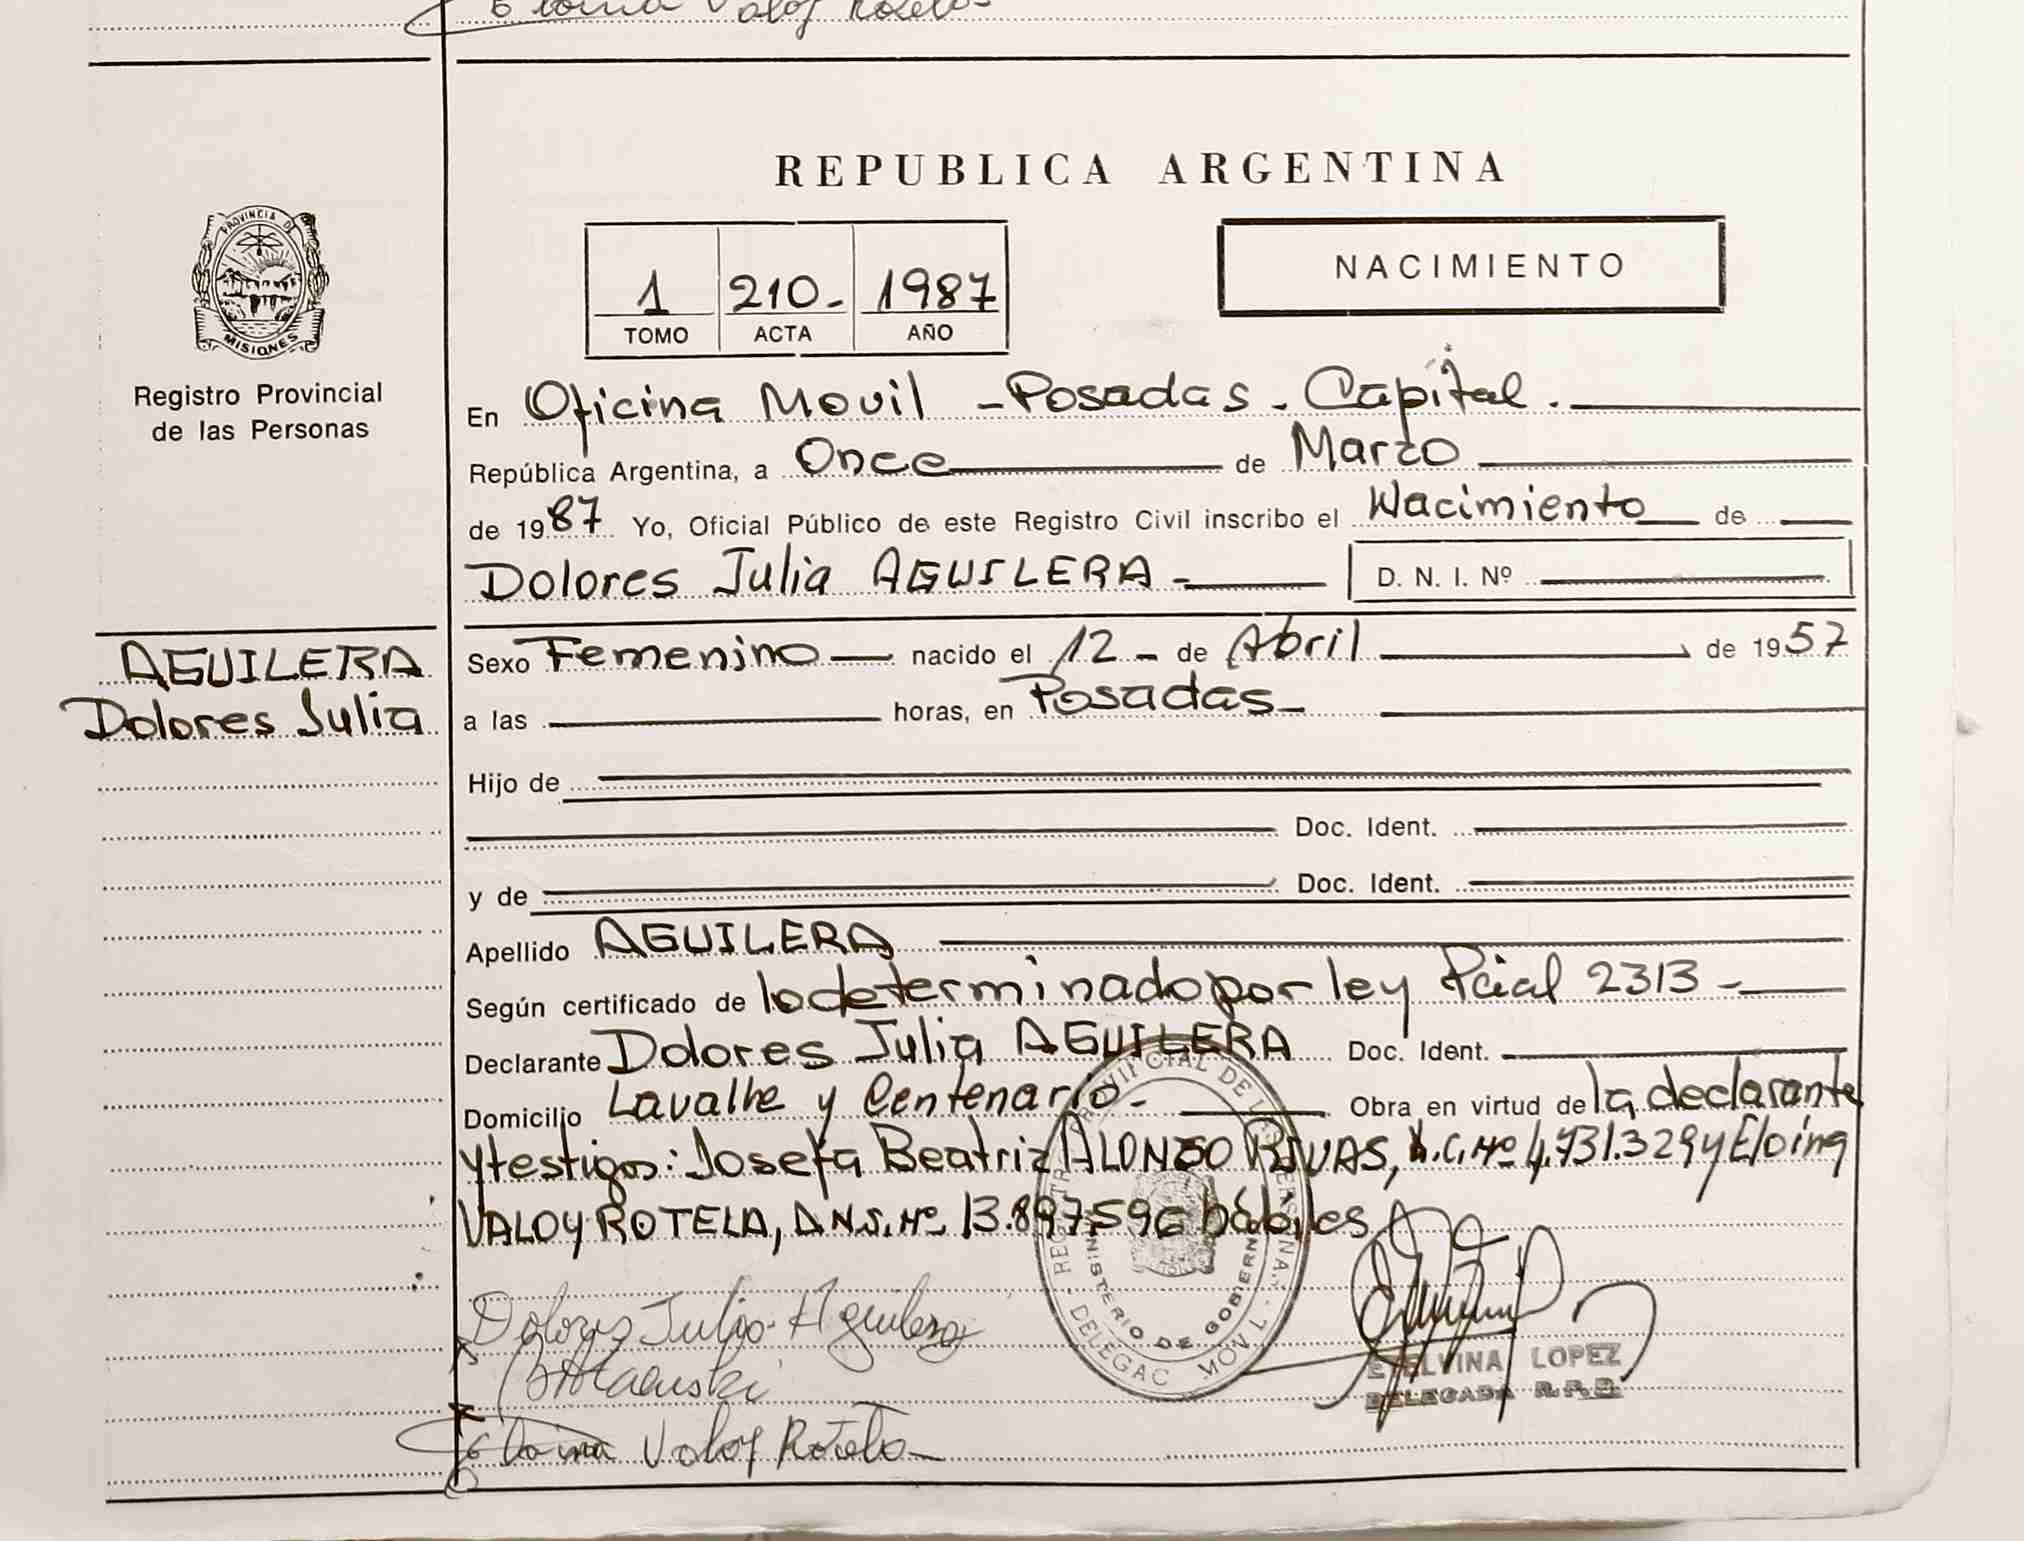 Valoy Rotela
REPUBLICA ARGENTINA
PROVINCIA DE
MISIONES
Registro Provincial
de las Personas
1 210- 1987
TOMO ACTA AÑO
NACIMIENTO
En Oficina Movil - Posadas - Capital.
República Argentina, a Once de Marzo
de 1987 Yo, Oficial Público de este Registro Civil inscribo el Nacimiento de
Dolores Julia AGUILERA - D. N. I. Nº
AGUILERA
Dolores Julia
Sexo Femenino nacido el 12 - de Abril de 1957
a las horas, en Posadas -
Hijo de
Doc. Ident.
y de Doc. Ident.
Apellido AGUILERA
Según certificado de lo determinado por ley Pcial 2313 -
Declarante Dolores Julia AGUILERA Doc. Ident.
Domicilio Lavalle y Centenario - Obra en virtud de la declarante
y testigos: Josefa Beatriz ALONZO RIVAS, Nº 4.931.329 y Eloina
VALOY ROTELA, D.N.I. Nº 13.897.596 hábiles
REGISTRO PROVINCIAL DE LAS PERSONAS
MINISTERIO DE GOBIERNO
DELEGAC MOVIL
Dolores Julia Aguilera
Eloina Valoy Rotela
ELVINA LOPEZ
DELEGADA R.P.P.